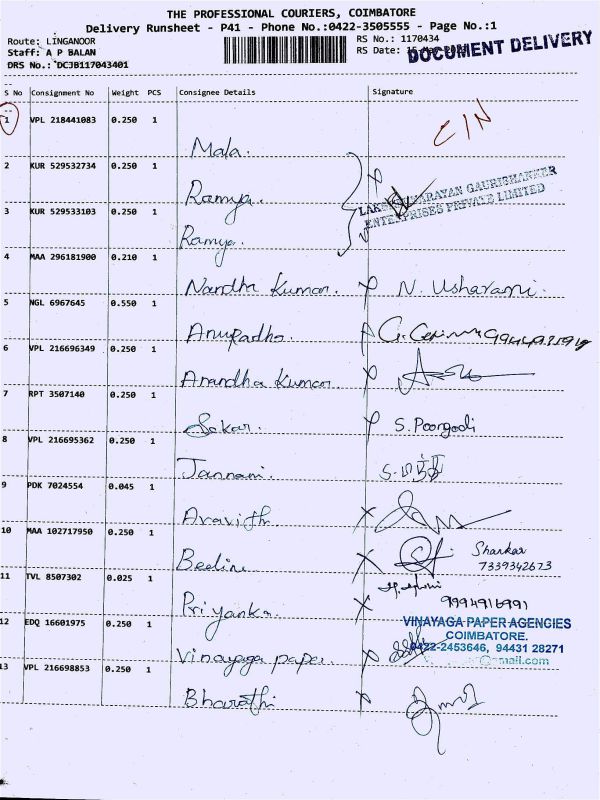 THE PROFESSIONAL COURIERS, COIMBATORE
Delivery Runsheet - P41 - Phone No.:0422-3505555 - Page No.:1
Route: LINGANOOR RS No.: 1170434
Staff: A P BALAN RS Date:
DRS No.: DCJB117043401 DOCUMENT DELIVERY
S No Consignment No Weight PCS Consignee Details Signature
1 VPL 218441083 0.250 1 Mala. C/N
2 KUR 529532734 0.250 1 Ramya.
GAURISHANKER
ENTERPRISES PRIVATE LIMITED
3 KUR 529533103 0.250 1 Ramya.
4 MAA 296181900 0.210 1 Nandha Kumar. N. Usharani.
5 NGL 6967645 0.550 1 Anupadha.
6 VPL 216696349 0.250 1 Anandha Kumar.
7 RPT 3507140 0.250 1 Sekar. S. Poongodi
8 VPL 216695362 0.250 1 Jannani.
9 PDK 7024554 0.045 1 Aravith
10 MAA 102717950 0.250 1 Bedline Shankar
7339342673
11 TVL 8507302 0.025 1 Priyanka. 9994916991
12 EDQ 16601975 0.250 1 Vinayaga paper
VINAYAGA PAPER AGENCIES
COIMBATORE.
0422-2453646, 94431 28271
13 VPL 216698853 0.250 1 Bharathi